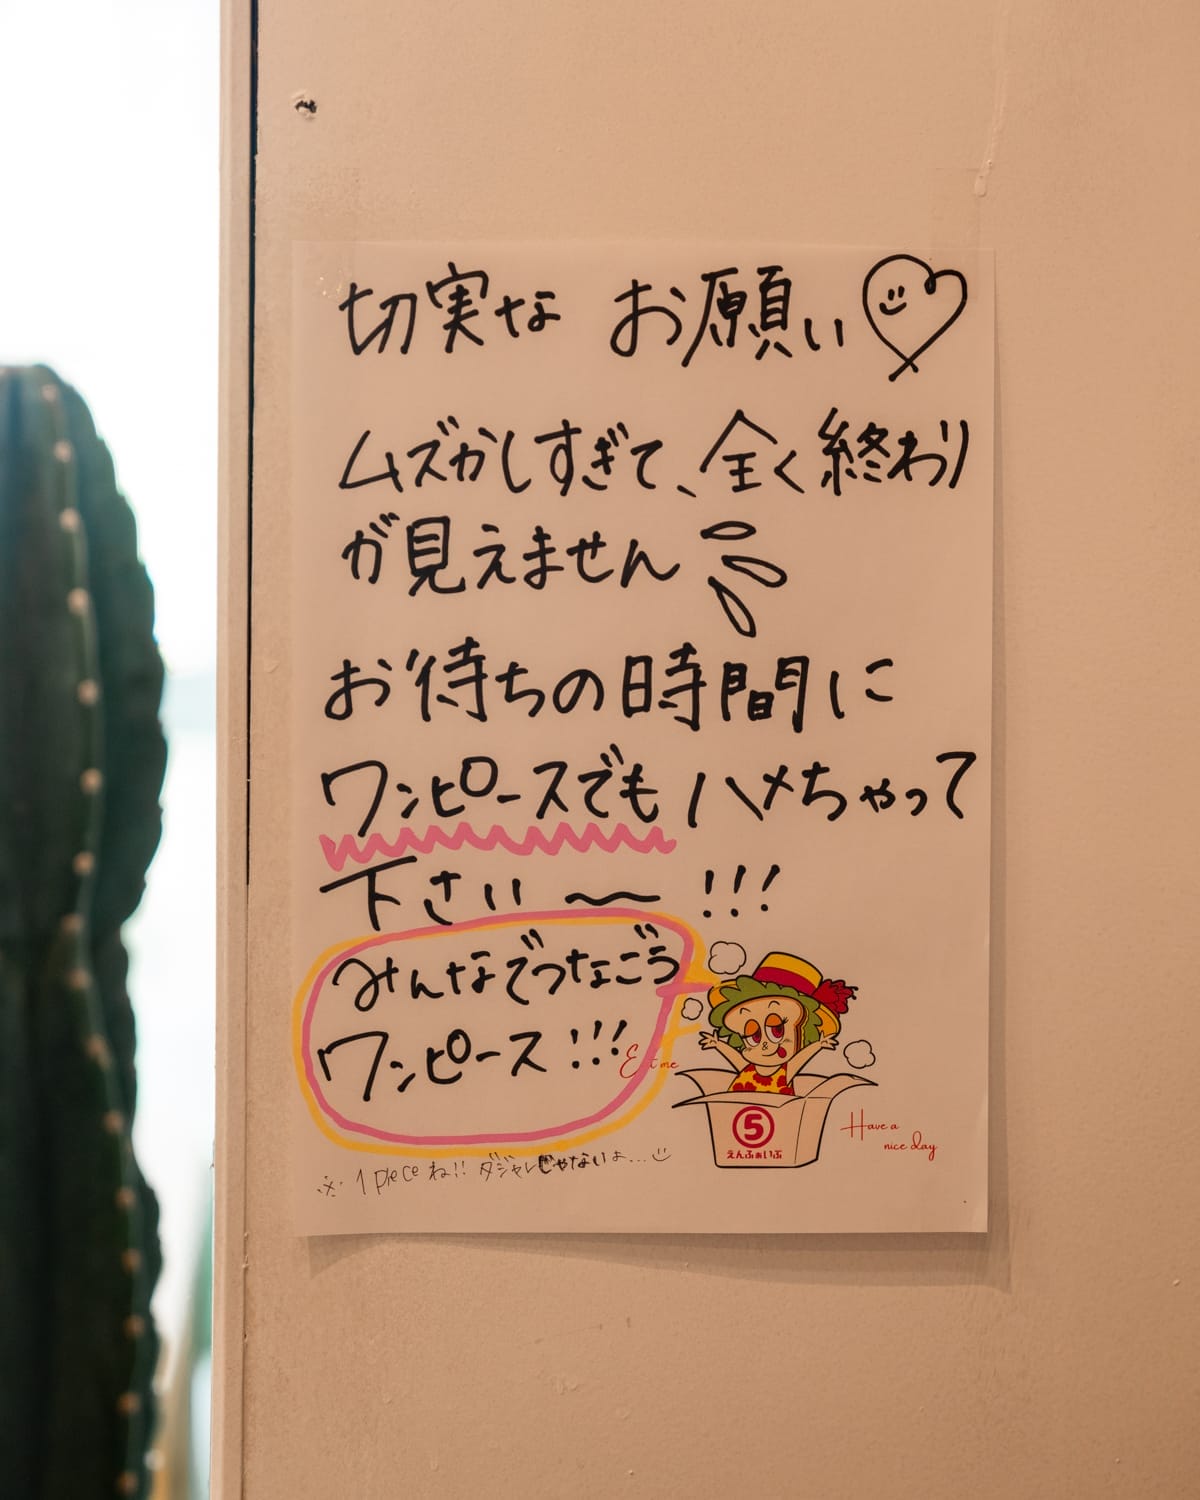 切実な お願い
ムズかしすぎて、全く終わり
が見えません
お待ちの時間に
ワンピースでもハメちゃって
下さい〜!!!
みんなでつなごう
ワンピース!!!
Eat me
⑤
えんふぁいぶ
Have a
nice day
※ 1 piece ね!! ダジャレじゃないよ...